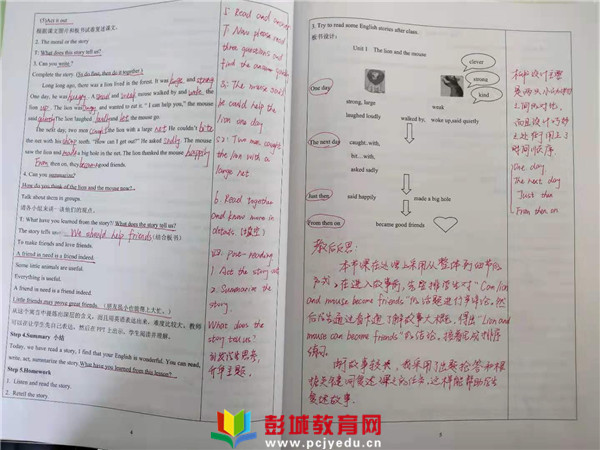 (5)Act it out
根据课文图片和板书试着复述课文。
2. The moral of the story
T: What does this story tell us?
3. Can you write?
Complete the story (To do first, then do it together)
Long long ago, there was a lion lived in the forest. It was large and strong
One day, he was hungry. A small and weak mouse walked by and woke the
lion up. The lion was angry and wanted to eat it. "I can help you," the mouse
said quietly. The lion laughed loudly and let the mouse go.
The next day, two men caught the lion with a large net. He couldn't bite
the net with his sharp teeth. "How can I get out?" He asked sadly. The mouse
saw the lion and made a big hole in the net. The lion thanked the mouse happily
From then on, they became good friends.
4. Can you summarize?
How do you think of the lion and the mouse now?
Talk about them in groups.
请各小组来讲一讲他们的观点。
T: What have you learned from the story? What does the story tell us?
The story tells us: We should help friends (结合板书)
To make friends and love friends.
A friend in need is a friend indeed.
Some little animals are useful.
Everything is useful.
A friend in need is a friend indeed.
Little friends may prove great friends.
可以让学生先自己表达，然后在 PPT 上出示，学生阅读并理解。
Step 4.Summary 小结
Today, we have read a story, I find that your English is wonderful. You can read,
write, act, summarize the story. What have you learned from this lesson?
Step 5.Homework
1. Listen and read the story.
2. Retell the story.
4
5. Read and answer
T: Now please read
three questions and
find the answer
S1: The mouse said
he could help the
lion one day
S2: Two men caught
the lion with a
large net
6. Read together
and know more in
details
Post-reading
1 Act the story out
2. Summarize the
story.
What does the
story tell us?
引发学生思考，
升华主题.
3. Try to read some English stories after class.
板书设计:
Unit 1 The lion and the mouse
clever
strong
kind
One day
strong, large
weak
laughed loudly
walked by, woke up,said quietly
The next day
caught..with,
bit... with;
asked sadly
Just then
said happily
made a big hole
From then on
became good friends
板书设计主要
时间顺序
One day
The next day
Just then
From then on
教后反思:
本节课在这课上采用从整体到细节
的方式,在进入故事前,
and mouse become friends"的话题进行争论。然
后学生通过看卡通,了解故事大概, 得出"Lion and
mouse can become friends"的结论。接着完成排序
练习。
5
彭城教育网
www.pcjyedu.cn